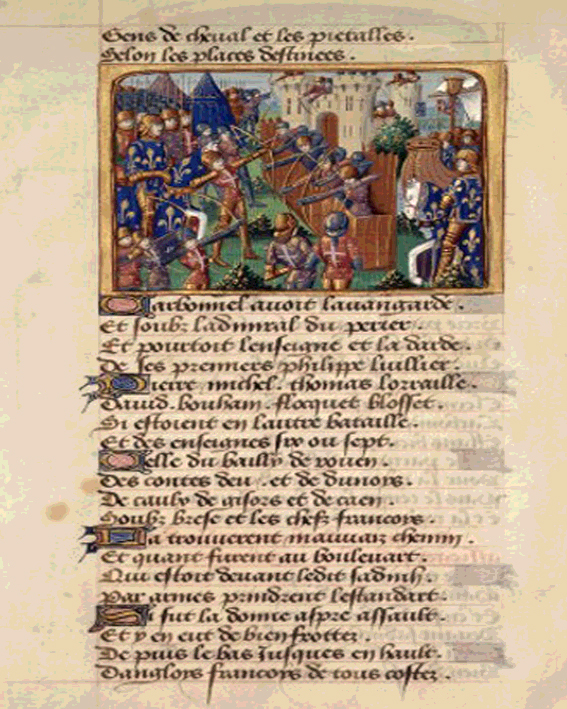 Gens de cheual et les pietalles .
Selon les places destinees .
Carbonnel auoit lauangarde .
Et soubz ladmiral du perier .
Et pourtoit lenseigne et la darde .
De ses premiers philippe luillier .
Pierre michel . thomas lorraille .
Dauid . bouham . flocquet blosset .
Si estoient en lautre bataille .
Et des enseignes six ou sept .
Celle du bailly de rouen .
Des contes deu . et de dunoys .
De caulx de gisors et de caen .
Soubz brese et les chefz francoys .
La trouuerent mauuaiz chemin .
Et quant furent au bouleuart .
Qui estoit deuant ledit
Par armes prindrent lestandart .
Si fut la donne aspre assault .
Et y en eut de bien frottez .
De puis le bas Jusques en hault .
Danglois francoys de tous costez .